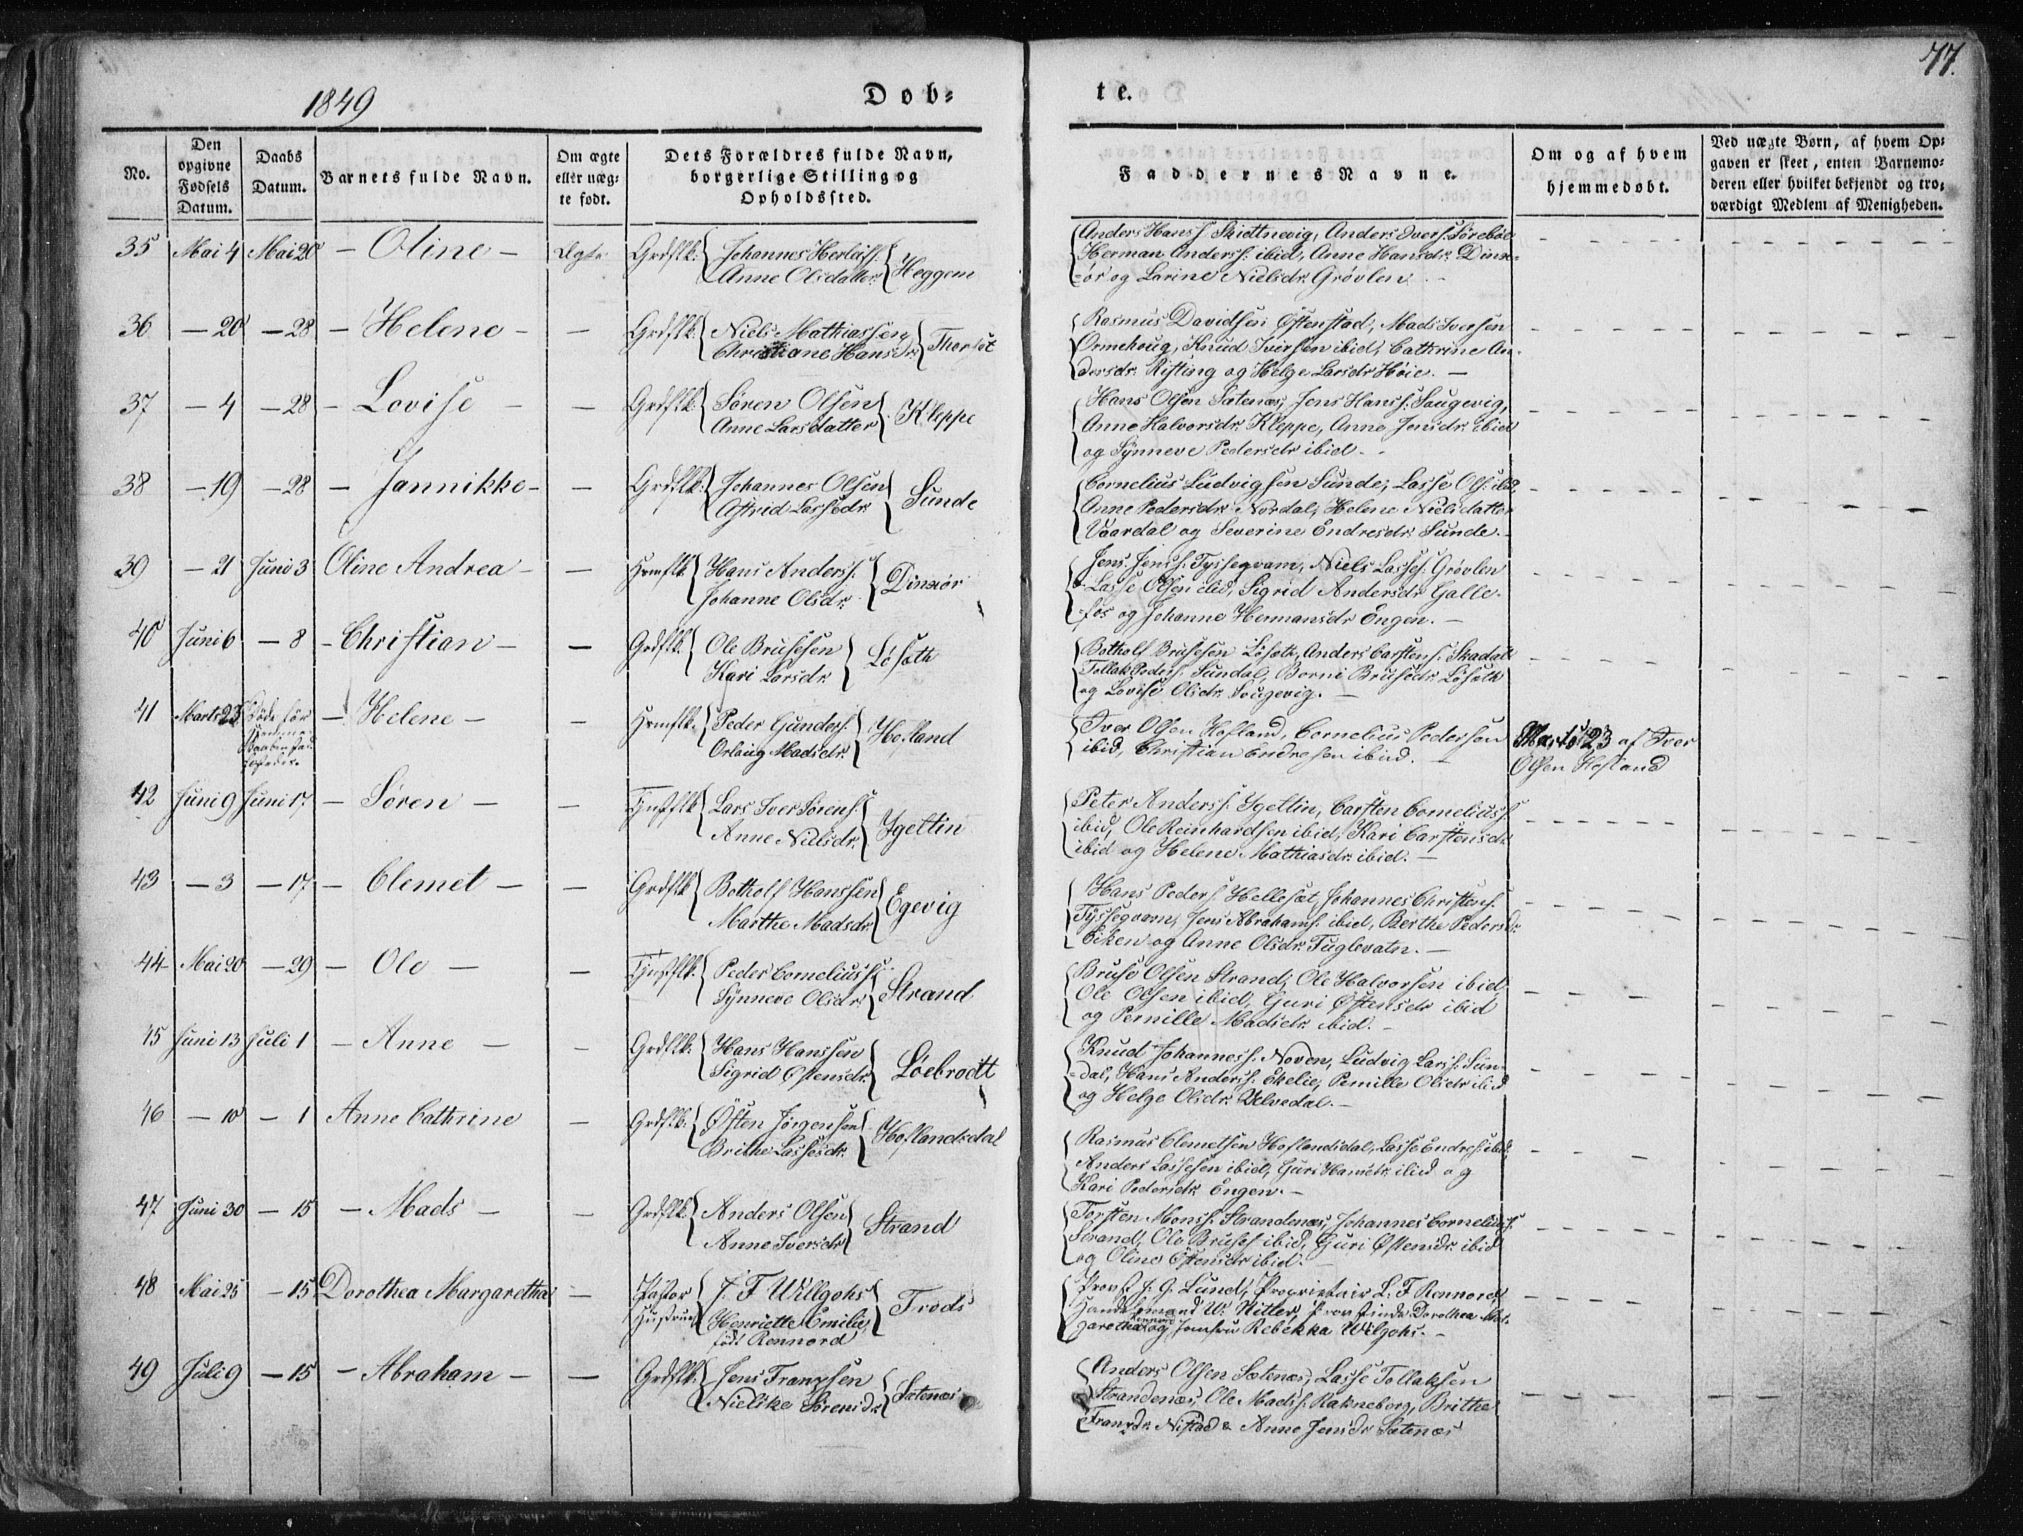 77.
1849
Døb=
te.
No.
Den opgivne Fødsels Datum.
Daabs Datum.
Barnets fulde Navn.
Om ægte eller uæg= te født.
Dets Forældres fulde Navn, borgerlige Stilling og Opholdssted.
Faddernes Navne.
Om og af hvem hjemmedøbt.
Ved uægte Børn, af hvem Op= gaven er skeet, enten Barnemo= deren eller hvilket bekjendt og tro= værdigt Medlem af Menigheden.
35 Mai 4 Mai 20 - Oline - Ægte Grdflk. Johannes Herleifs. Heggem
Anne Olsdatter
Anders Hanss. Skiettnevig, Anders Ivers. Sørebøe
Herman Anderss. ibid, Anne Hansdr. Dims=
=ør og Larine Nielsdr. Grøvlen.
36 - 20 - 28 - Helene - - Grdflk. Niels Mathiassen
Christiane Hansdr.
Rasmus Davidsen Østenstad, Mads Iversen
Ormehoug, Knud Iversen ibid, Cathrine An=
dersdr. Rifting og Helge Larsdr Høie. -
37 - 4 - 28 - Lovise - - Grdflk. Søren Olsen Kleppe
Anne Larsdatter
Hans Olsen Sætenæs, Jens Hanss. Saugevig,
Anne Halvorsdr. Kleppe, Anne Jensdr. ibid
og Synneve Pedersdr ibid.
38 - 19 - 28 - Jannikke - - Grdflk. Johannes Olsen Sunde
Astrid Lassedr.
Cornelius Ludvigsen Sunde, Lasse Ols. ibid,
Anne Pedersdr. Nordal, Helene Nielsdatter
Vaardal og Severine Endresdr. Sunde. -
39 - 21 Juni 3 Oline Andrea - - Hrmflk. Hans Anderss. Dimsør
Johanne Olsdr.
Jens Jenss. Tyssegvam, Niels Lasses. Grøvlen
Lasse Olsen ibid, Sigrid Andersdr. Galle=
=fos og Johanne Hermansdr Engen. -
40 Juni 6 - 8 - Christian - - Grdflk. Ole Brusesen Løsøth
Kari Larsdr.
Botholf Brusesen Løsøth, Anders Carstens. Skadal
Tollak Peders. Sundal, Borni Brusedr. Løsøth
og Lovise Olsdr. Sougevig. -
41 Marts 23 Døde før - Helene - - Hrmflk. Peder Gunders. Hofland
Madsdr.
Iver Olsen Hofland, Cornelius Pedersen
ibid, Christian Endresen ibid.
Marts 23 af Iver
Olsen Hofland
42 Juni 9 Juni 17 - Søren - - Lars Iver Sørens. Ygeltin
Anne Nielsdr.
Peter Anderss. Ygeltin, Carsten Corneliuss.
ibid, Ole Reinhardsen ibid, Kari Carstensdr.
ibid og Helene Mathiasdr. ibid. -
43 - 3 - 17 - Clemet - - Grdflk. Botholf Hanssen Egevig
Marthe Madsdr.
Hans Peders. Hellesæt, Johannes Christens.
Tyssegvam, Jens Abrahams. ibid, Berthe Pedersdr.
Eiken og Anne Olsdr. Fuglevatn. -
44 Mai 20 - 29 - Ole - - Peder Corneliuss. Strand
Synneve Olsdr.
Bruse Olsen Strand, Ole Halvorsen ibid,
Ole Olsen ibid, Guri Østensdr ibid
og Pernille Madsdr. ibid. -
45 Juni 13 Juli 1 - Anne - - Grdflk. Hans Hanssen Løebrodtt
Sigrid Østensdr.
Knud Johanness. Noven, Ludvig Larss. Sun=
=dal, Hans Anderss. Ekelie, Pernille Olsdr ibid
og Helge Olsdr. Velvedal. -
46 - 10 - 1 Anne Cathrine - Grdflk. Østen Jørgensen Hoflandsdal
Brithe Lassesdr.
Rasmus Clemetsen Hoflandsdal, Lasse Endres. ibid.
Anders Lassesen ibid, Guri Hansdr. ibid og
Kari Pedersdr Engen. -
47 Juni 30 - 15 - Mads - - Grdflk. Anders Olsen Strand
Anne Iversdr
Torsten Monss. Strandenæs, Johannes Cornelius.
Strand, Ole Bruses ibid, Guri Østensdr. ibid
og Oline Østensdr ibid. -
48 Mai 25 - 15 Dorothea Margaretha - Pastor J. F. Willgohs Trods
Hustrue Henriette Emilie
født Rennord
Provst J. G. Lund, Proprietair L. F. Rennord,
W. Ritter, Dorothea Mar=
garetha Rennord og Jomfru Rebekka Wilgohs. -
49 Juli 9 - 15 - Abraham - - Grdflk. Jens Franssen Sætenæs
Nielike Sørensdr.
Anders Olsen Sætenæs, Lasse Tollaksen
Strandenæs, Ole Madss. Rakneberg, Brithe
Fransdr. Nistad & Anne Jensdr Sætenæs